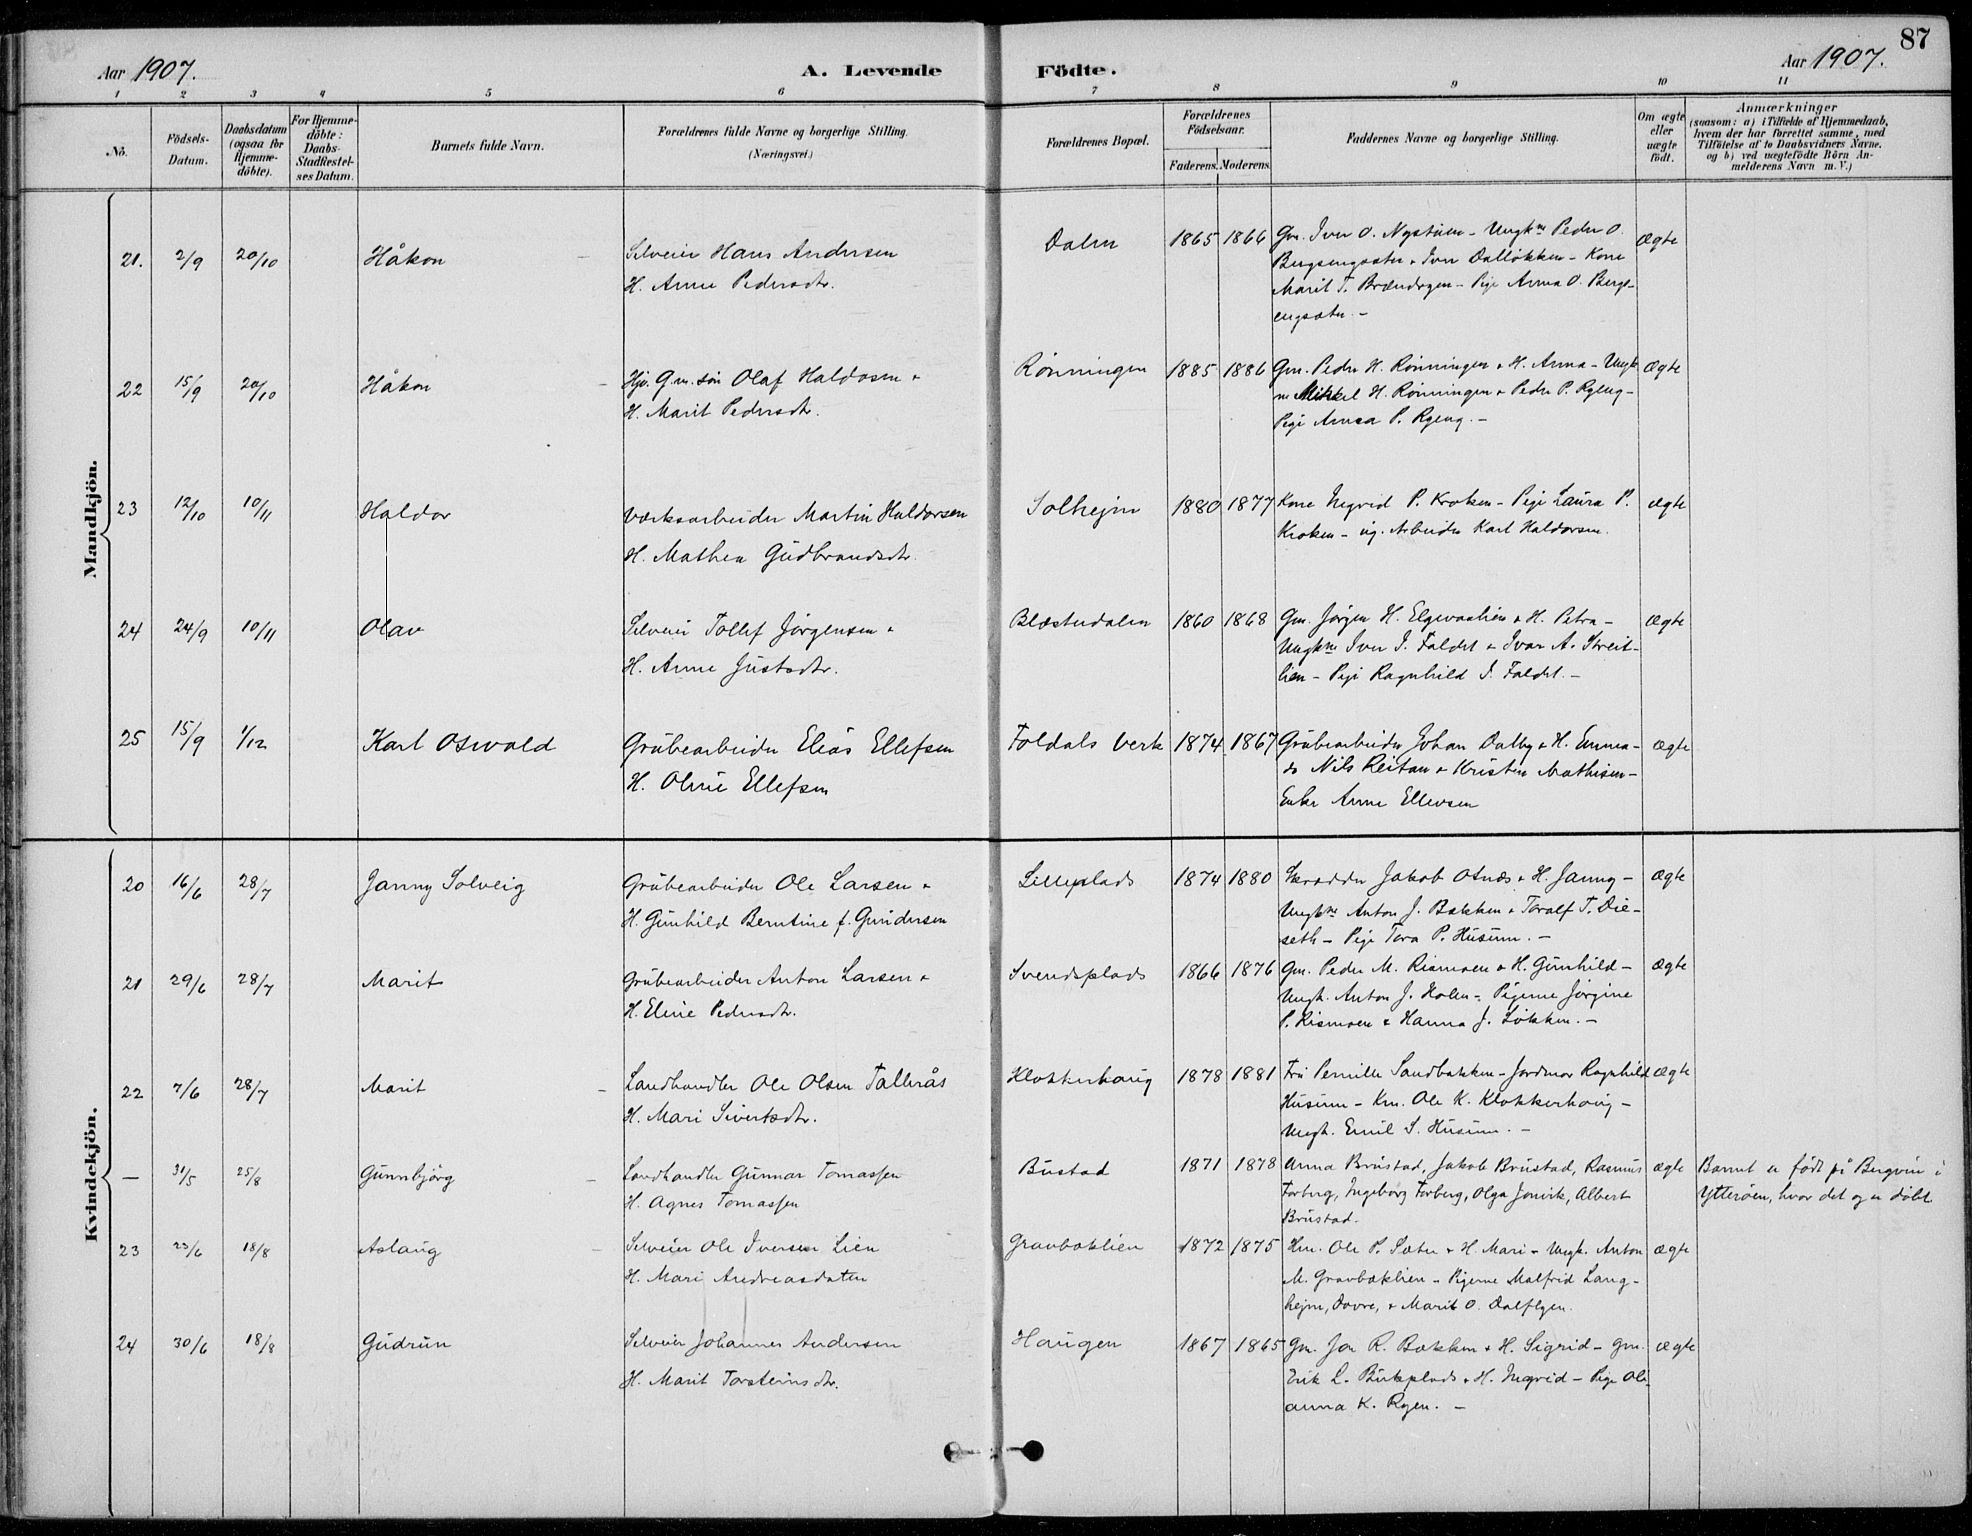 87
Aar 1907.
A. Levende Födte.
Aar 1907.
1 2 3 4 5 6 7 8 9 10 11
No.
Födsels-Datum.
Daabsdatum (ogsaa för Hjemme-döbte).
For Hjemme-döbte: Daabs-Stadfæstel-ses Datum.
Barnets fulde Navn.
Forældrenes fulde Navne og borgerlige Stilling.
(Næringsvei.)
Forældrenes Bopæl.
Forældrenes Födselsaar.
Faderens. Moderens.
Faddernes Navne og borgerlige Stilling.
Om ægte eller uægte födt.
Anmærkninger
(saasom: a) i Tilfælde af Hjemmedaab, hvem der har forrettet samme, med Tilföielse af to Daabsvidners Navne. og b) ved uægtefödte Börn An-melderens Navn m. V.)
Mandkjön.
21. 2/9 20/10 Håkon
Selveier Hans Andersen
H. Anne Pedersdtr.
Dalen 1865 1866
Gm. Iver O. Nystuen - Ungkm Peder O.
Bergsengsæter + Iver Dalløkken - Kone
Marit T. Brændvgen - Pige Anna O. Bergs-
engsæter. -
ægte
22 15/9 20/10 Håkon
Hjv. G.m.søn Olaf Haldosen +
H. Marit Pedersdtr.
Rønningen 1885 1886
Gm. Peder H. Rønningen + H. Anna - Ungk
m Mikkel H. Rønningen + Peder P. Ryeng -
Pige Anna P. Ryeng. -
Ægte
23 12/10 10/11 Haldor
Værksarbeider Martin Haldorsen
H. Mathea Gudbrandsdtr.
Solhejm 1880 1877
Kone Ingrid P. Kroken - Pige Laura P.
Kroken - ug. Arbeider Karl Haldorsen.
ægte
24 24/9 10/11 Olav
Selveier Tollef Jørgensen +
H. Anne Justsdtr.
Blæsterdalen 1860 1868
Gm. Jørgen H. Elgevaslien + H. Petra -
Ungkm Iver J. Faldet + Ivar A. Streit-
lien - Pige Ragnhild J. Faldet. -
Ægte
25 15/9 1/12 Karl Oswald
Grubearbeider Elias Ellefsen
H. Oline Ellefsen
Foldals Verk 1874 1867
Grubearbeider Johan Dalby + H. Emma -
do Nils Reitan + Kristen Mathisen -
Enke Anne Ellevsen
ægte
Kvindekjön.
20 16/6 28/7 Janny Solveig
Grubearbeider Ole Larsen +
H. Gunhild Berntine f. Gundersen
Lilleplads 1874 1880
Skrædder Jakob Osnæs + H. Janny -
Ungkm Anton J. Bakken + Toralf T. Die-
seth - Pige Tora P. Husum. -
Ægte
21 29/6 28/7 Marit
Grubearbeider Anton Larsen +
H. Eline Pedersdtr.
Svendsplads 1866 1876
Gm. Peder M. Rismoen + H. Gunhild -
Ungk. Anton J. Holen - Pigerne Jørgine
P. Rismoen + Hanna J. Løkken. -
Ægte
22 7/6 28/7 Marit
Landhandler Ole Olsen Tallerås
H. Mari Sivertsdtr.
Klokkerhaug 1878 1881
Fru Pernille Sandbakken - Jordmor Ragnhild
Husum - Km. Ole K. Klokkerhaug -
Ungk. Emil S. Husum. -
ægte
— 31/5 25/8 Gunnbjörg
Landhandler Gunnar Tomassen
H. Agnes Tomassen
Bustad 1871 1878
Anna Brustad, Jakob Brustad, Rasmus
Forberg, Ingeborg Forberg, Olga Jonvik, Albert
Brustad.
ægte
Barnet er født på Bergvin i
Ytterøen, hvor det og er døbt
23 23/6 18/8 Aslaug
Selveier Ole Iversen Lien
H. Mari Andreasdatter
Gravbæklien 1872 1875
Hm. Ole P. Sæter + H. Mari - Ungk. Anton
M. Gravbæklien - Pigerne Malfrid Lang-
hejm, Dovre, + Marit O. Dalflyen.
ægte
24 30/6 18/8 Gudrun
Selveier Johannes Andersen
H. Marit Torsteinsdtr.
Haugen 1867 1865
Gm. Jon R. Bakken + H. Sigrid - Gm.
Erik L. Birkplads + H. Ingrid - Pige Ole-
anna K. Ryen. -
ægte